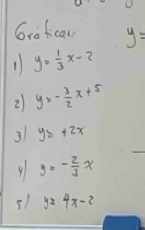 Graficar: y=
1) y = 1/3 x - 2
2) y = -3/2 x + 5
3) y = +2x
4) y = -2/3 x
5) y = 4x - 2